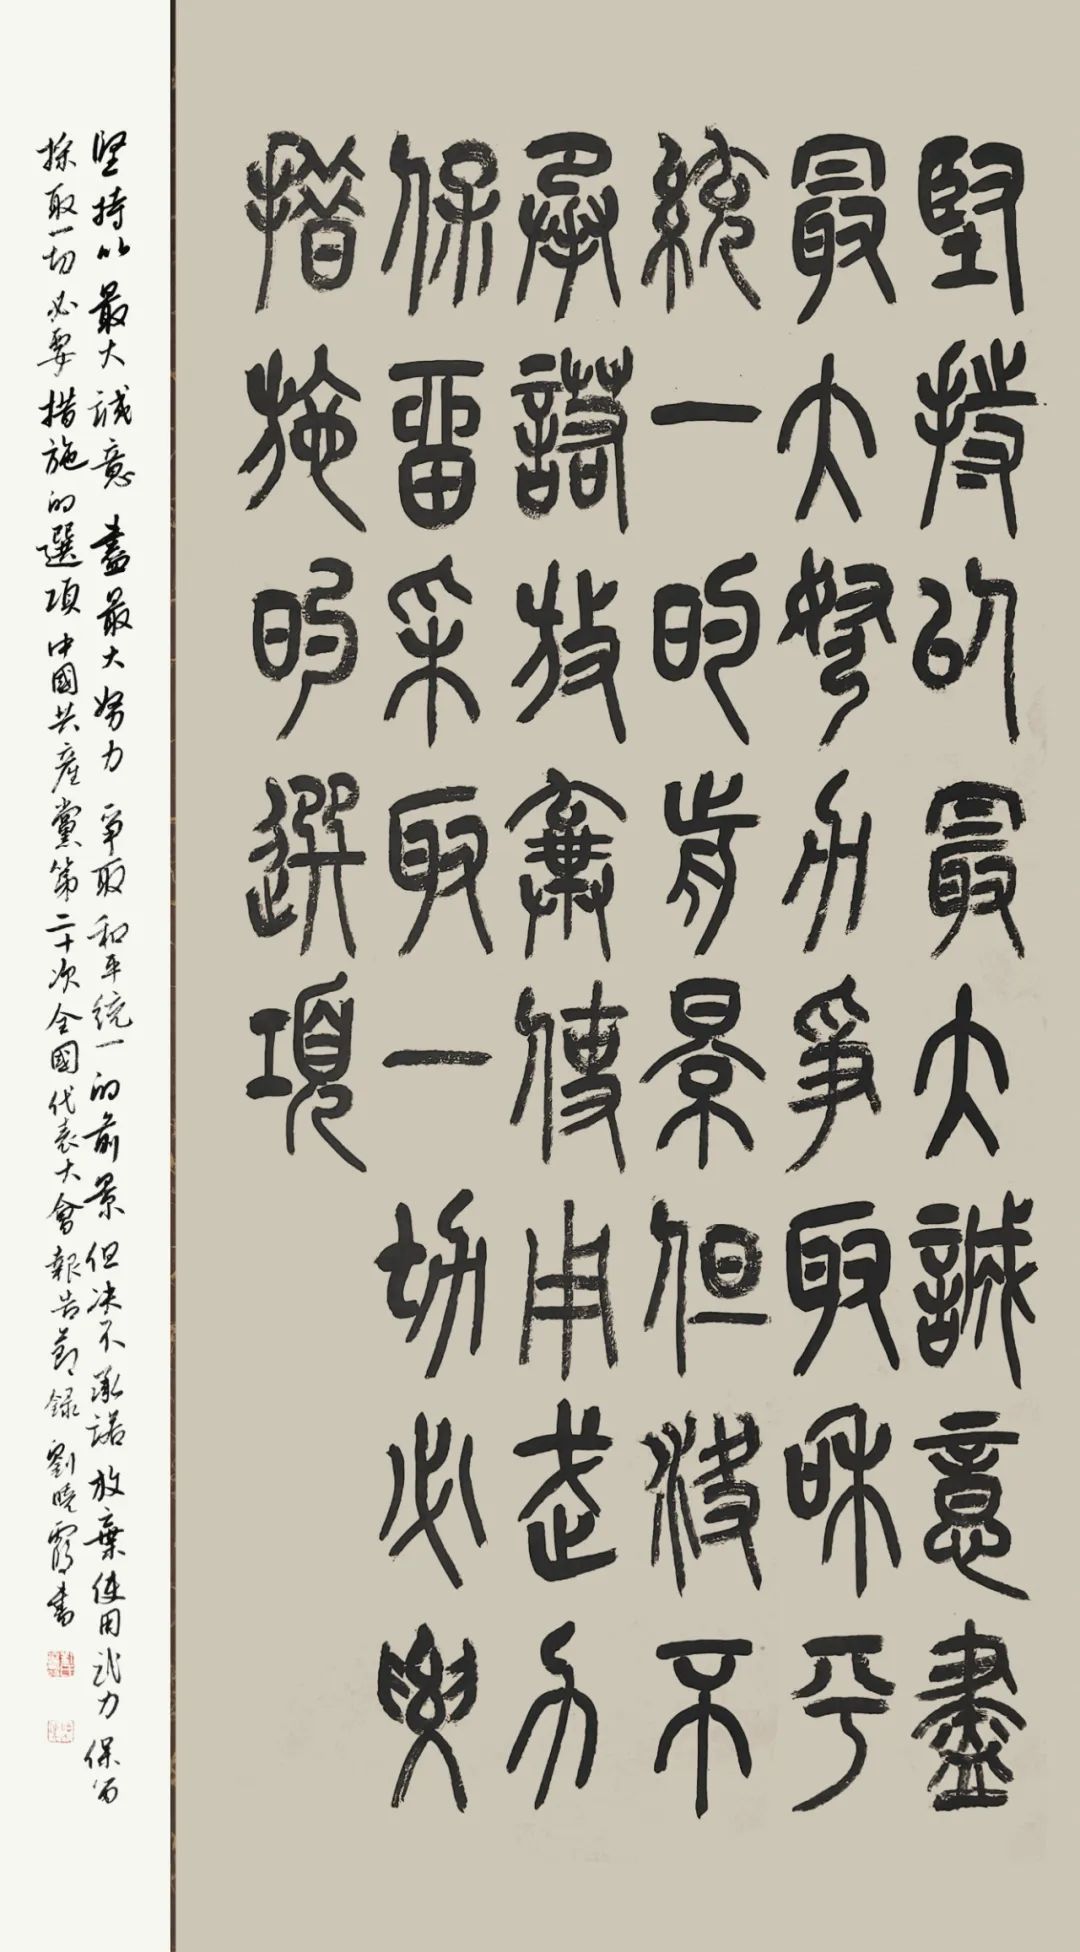 堅持以最大誠意盡
最大努力爭取和平
統一的前景但決不
承諾放棄使用武力
保留采取一切必要
措施的選項
堅持以最大誠意盡最大努力爭取和平統一的前景但決不承諾放棄使用武力保留
採取一切必要措施的選項中國共產黨第二十次全國代表大會報告節錄劉曉霞書